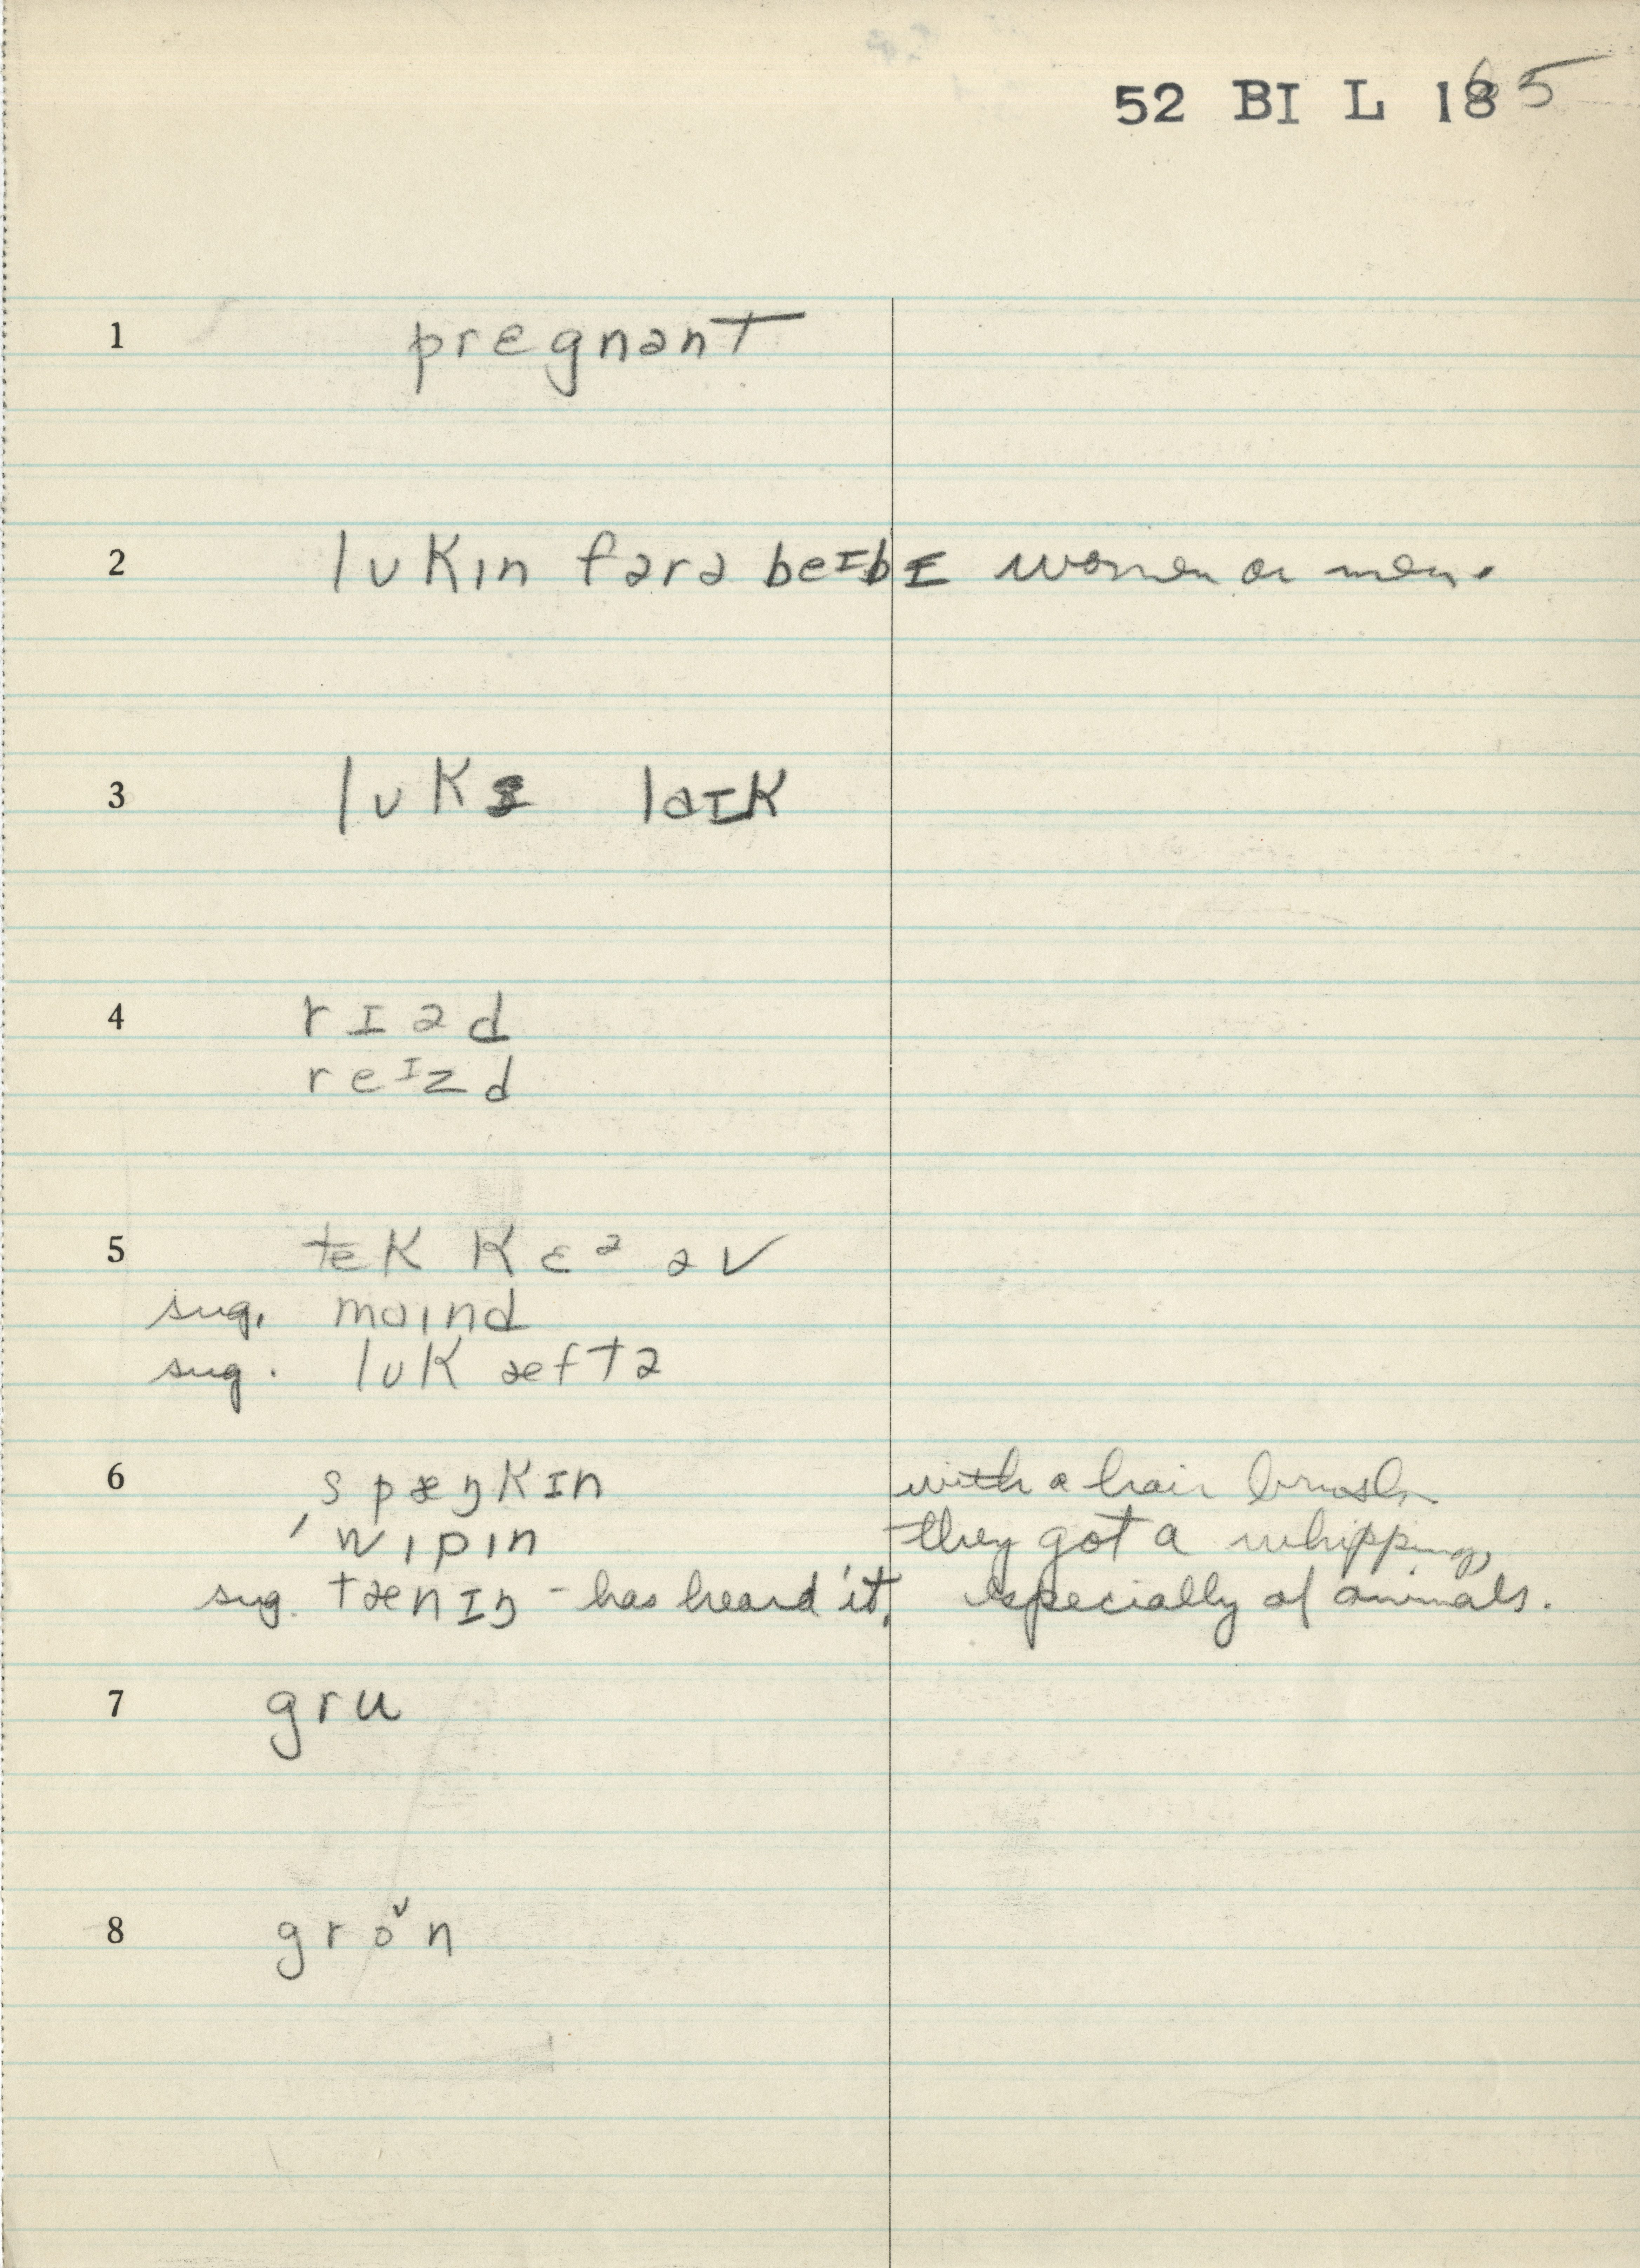 52 BI L 165
1 prɛgnənt
2 lʊkɪn fərə beɪbɪ women or men.
3 lʊks laɪk
4 rɪəd
reɪzd
5 tek kɛᵊ əv
sug. maɪnd
sug. lʊk æftə
6 spæŋkɪn with a hair brush
wɪpɪn they got a whipping,
sug. tænɪŋ - has heard it, especially of animals.
7 gru
8 groᵛn